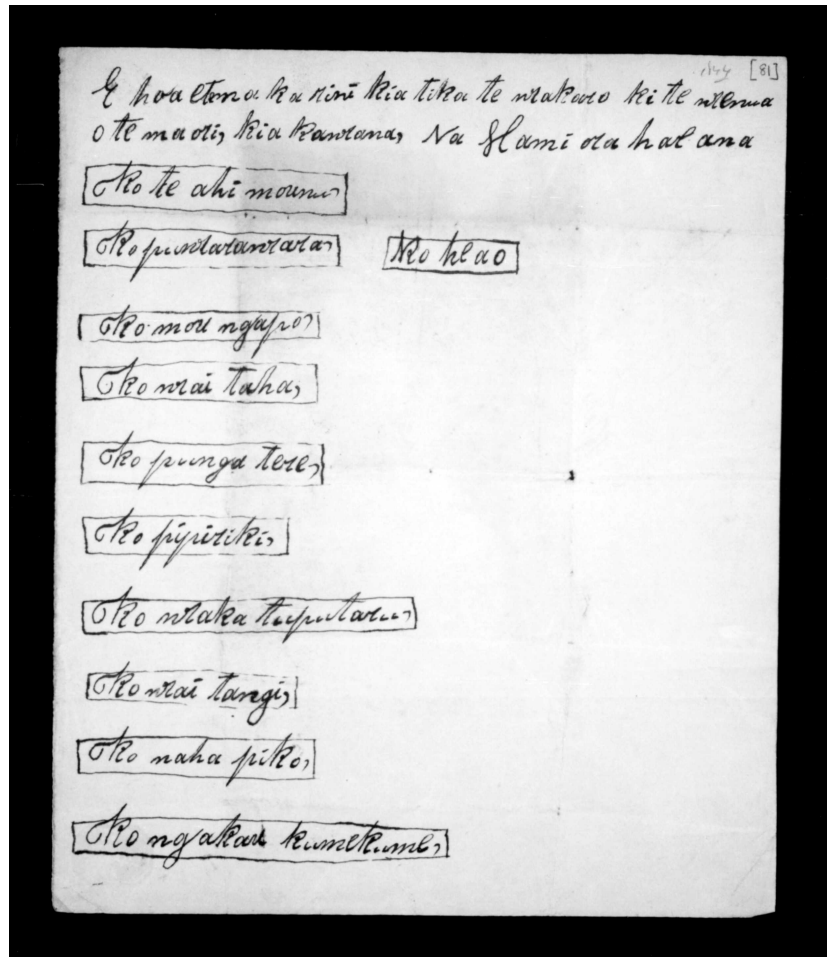 [81]
E hoa etema ka rini kia tika te wakaro ki te wenua
o te maori, kia kawana, Na Hami ora hae ana
Ko te ahi mounu,
Ko puwarawara, Ko heao
Ko mou ngapo,
Ko wai taha,
Ko punga tere,
Ko pipiriki,
Ko waka tuputaru,
Ko wai tangi,
Ko naha piko,
Ko ngakau kumekume,